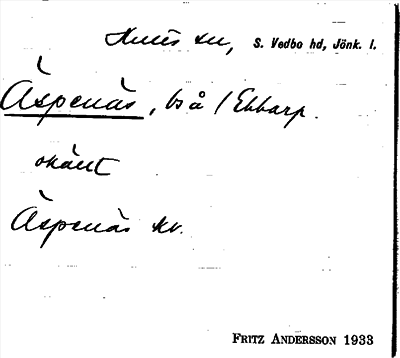 sn, S. Vedbo hd, Jönk. l.
Äspenäs, bs å /Ekkarp.
okänt
Äspenäs kv.
FRITZ ANDERSSON 1933